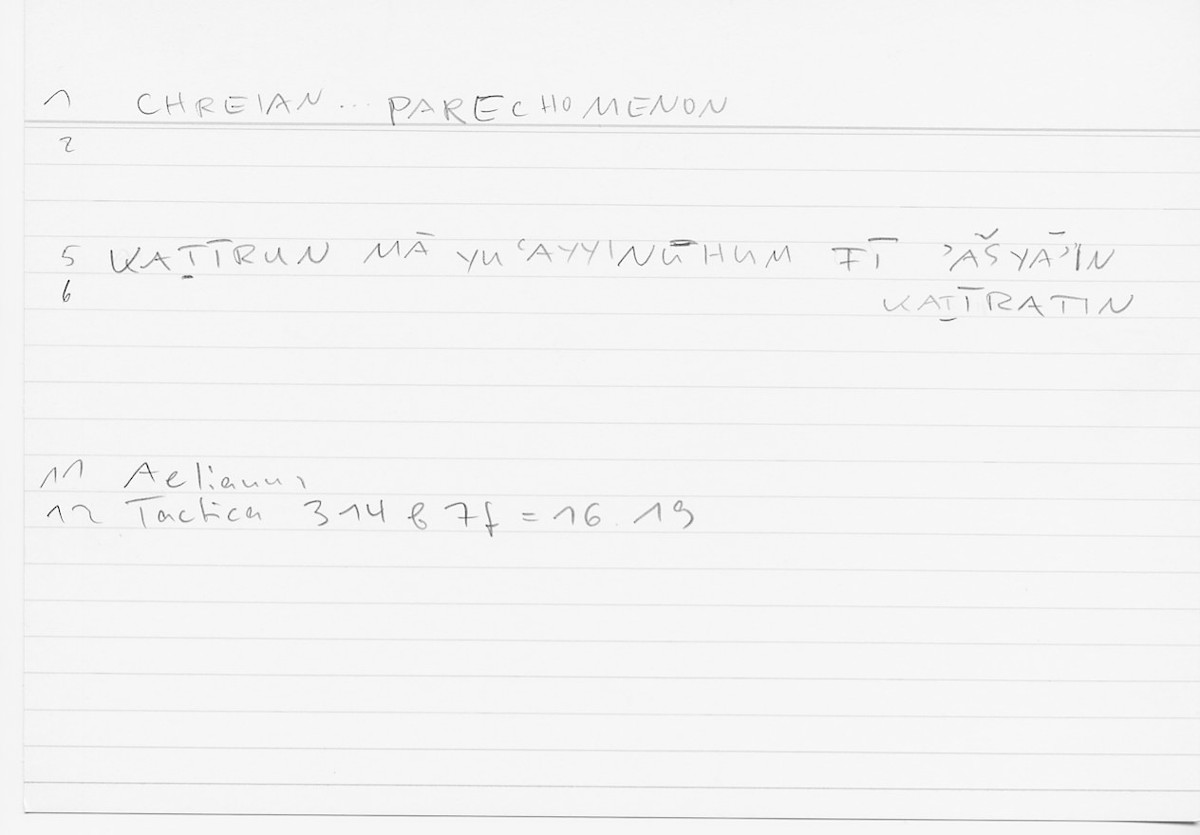 1 CHREIAN ... PARECHOMENON
2
5 KAṮĪRUN MĀ YUʿAYYINŪHUM FĪ ʾAŠYĀʾIN
6 KAṮĪRATIN
11 Aelianus
12 Tactica 314 b 7f = 16.19